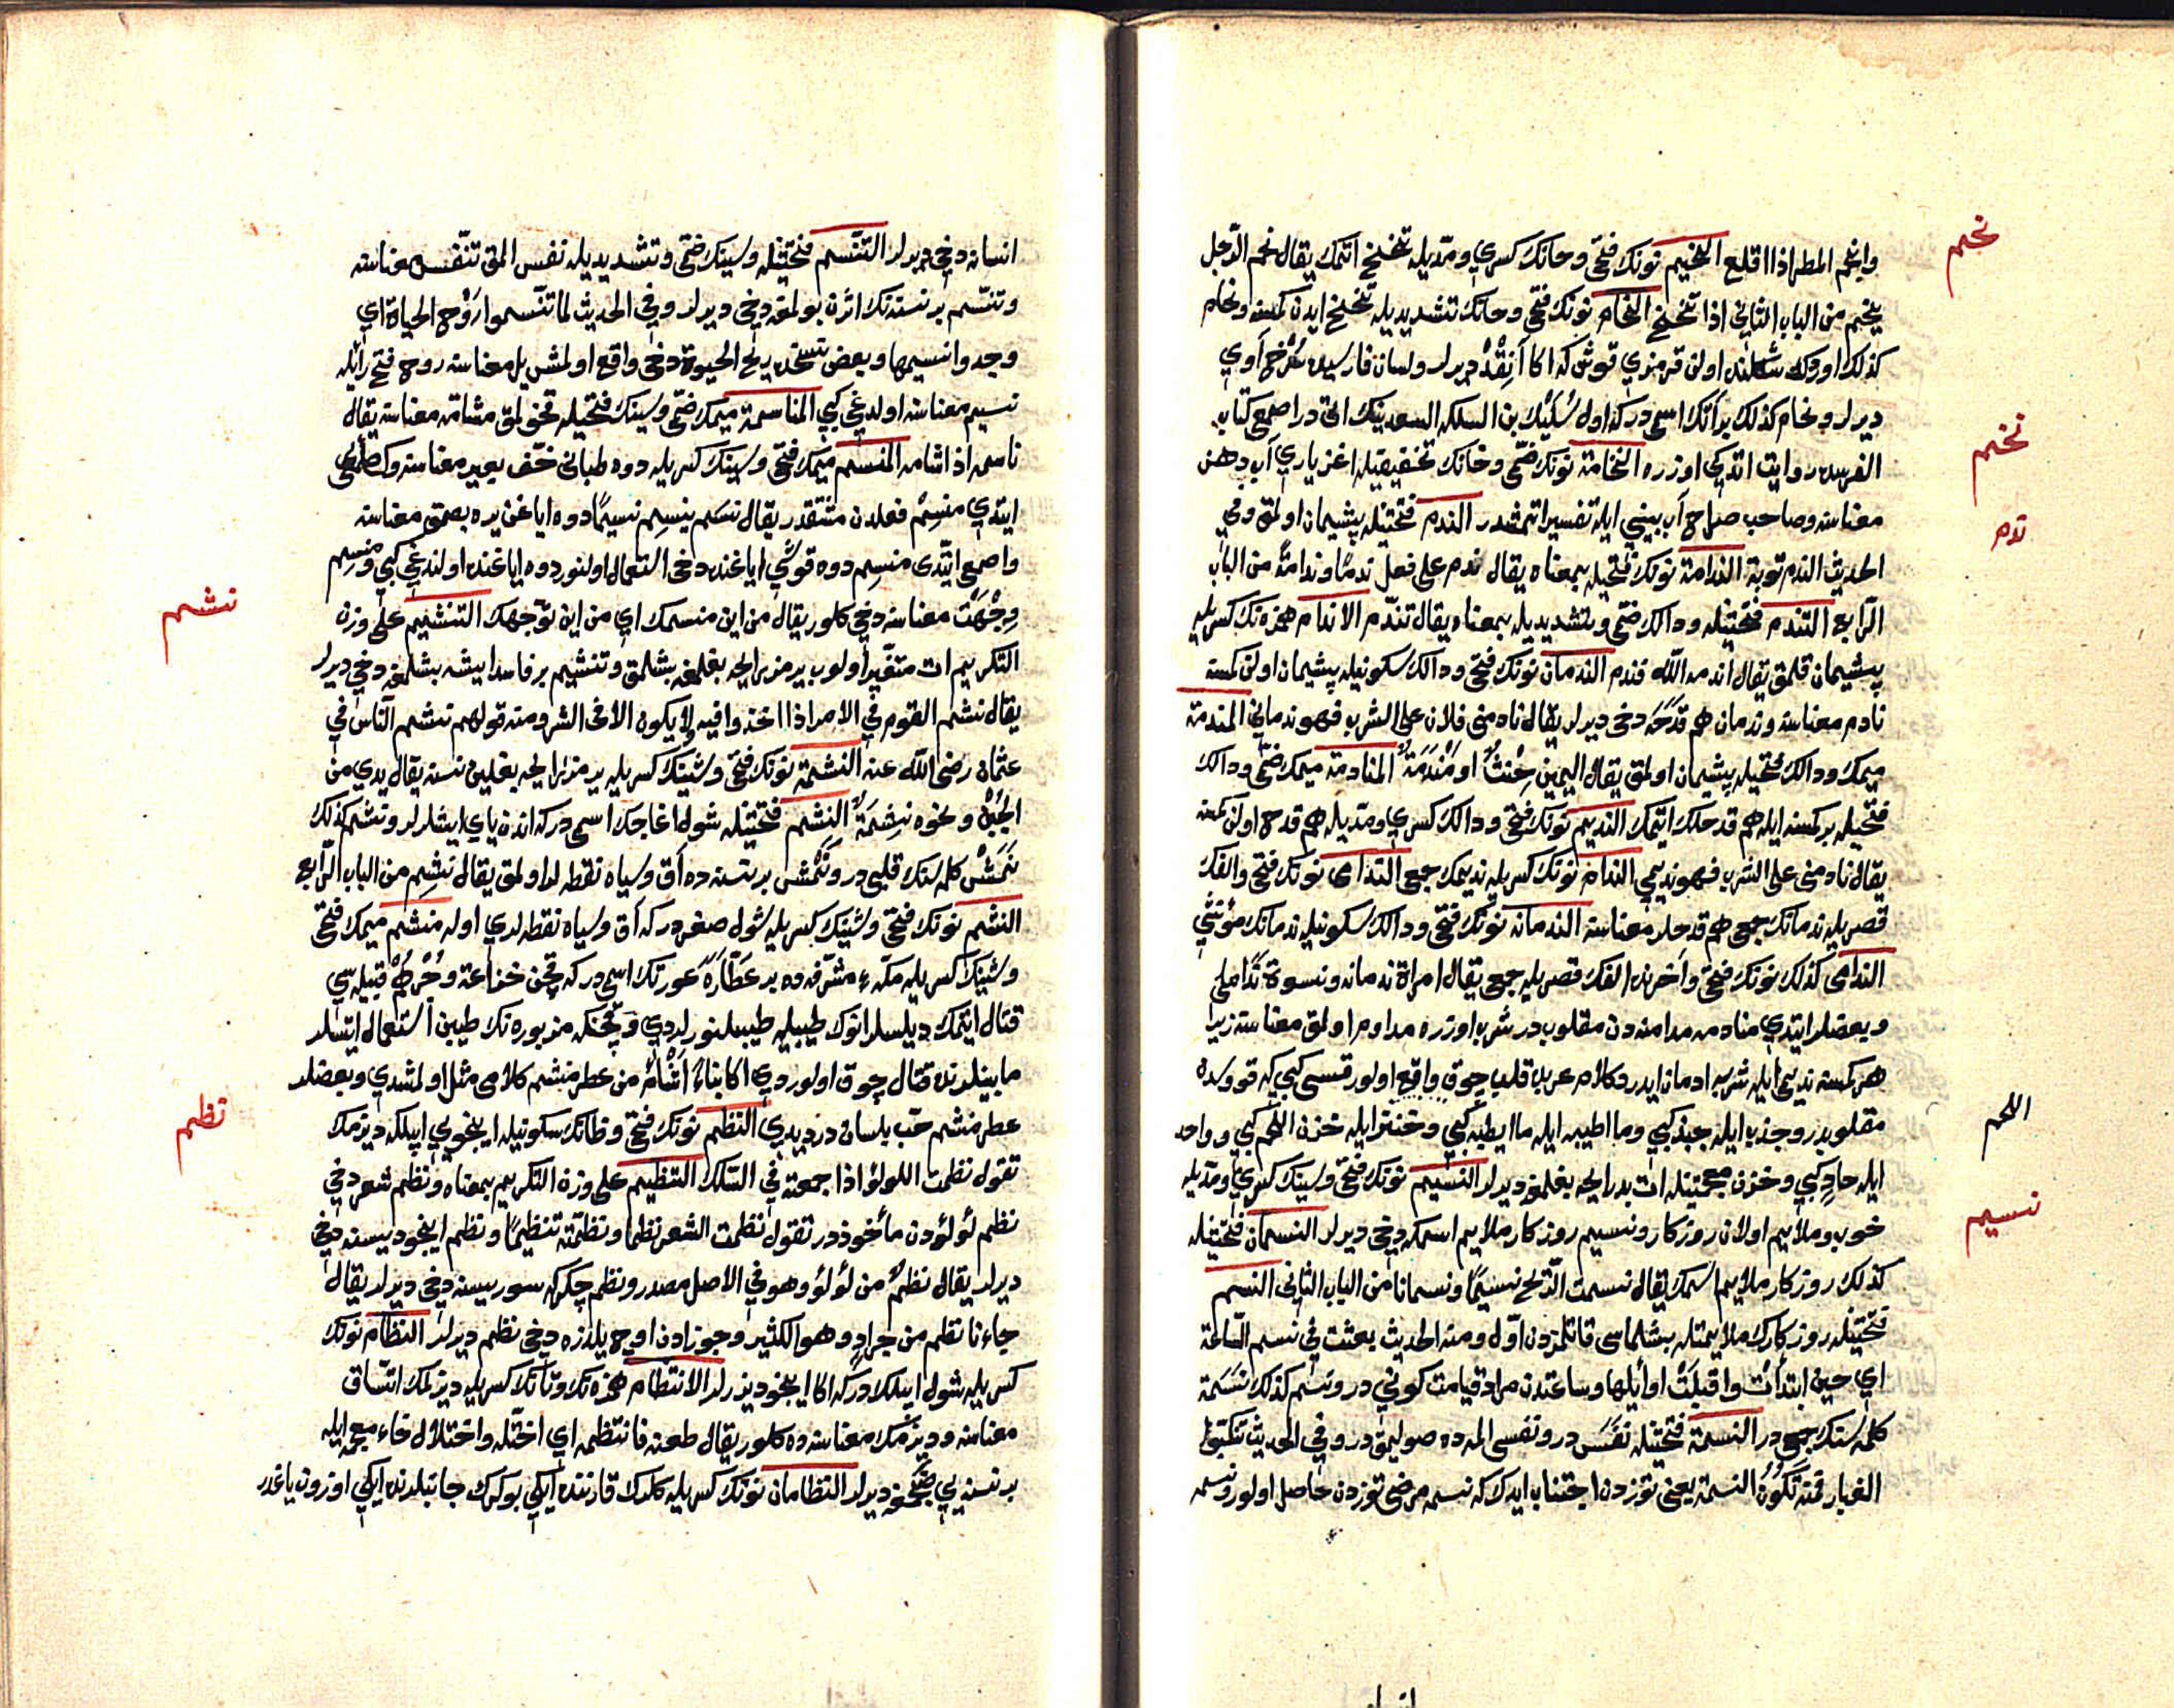 نحم
وانجم المطر اذا اقلع النحيم نونك فتحى وحانك كسرى ومدّيله تنحنح اتمك يقال نحم الرّجل
ينحم من الباب الثانى اذا تنحنح النحام نونك فتحى وحانك تشديديله تنحنح ايدن كمسنه ونحام
كذلك اوردك شكلنده اولن قرمزى قوشدر كه اكا ديرلر ولسان فارسيده سرخ آوى
ديرلر ونحام كذلك بر آتك اسمى دركه اول سُلَيْك بن السلكه السعدينك اتى در اصمعى كتاب
نخم
الفرسده روايت اتدكى اوزره النخامة نونك ضمّى وخانك تخفيفيله اغز يارى آب دهن
معناسنه وصاحب صراح آب بينى ايله تفسير اتمشدر الندم فتحتيله پشيمان اولمق وفى
ندم
الحديث الندم توبة الندامة نونك فتحيله بمعناه يقال ندم على فعل ندمًا وندامةً من الباب
الرّابع التندم فتحتيله ودالك ضمّى وتشديديله بمعناه يقال تندّم الاندام همزه نك كسريله
پشيمان قلمق يقال اندمه اللّه فندم الندمان نونك فتحى ودالك سكونيله پشيمان اولن كمسنه
نادم معناسنه وندمان هم قدحه دخى ديرلر يقال نادمنى فلان على الشرب فهو ندمانى المندمة
ميمك ودالك فتحيله پشيمان اولمق يقال اليمين حِنْثٌ او مَنْدَمَةٌ المنادمة ميمك ضمّى ودالك
فتحيله بر كمسنه ايله هم قدحلك اتمك النديم نونك فتحى ودالك كسرى ومدّيله هم قدح اولن كمسنه
يقال نادمنى على الشرب فهو نديمى الندام نونك كسريله نديمك جمعى الندامى نونك فتحى والفك
قصريله ندمانك جمعى هم قدحلر معناسنه الندمانة نونك فتحى ودالك سكونيله ندمانك مؤنثى
الندامى كذلك نونك فتحى وآخرنده الفك قصريله جمعى يقال امراة ندمانه ونسوة نَدَامى
وبعضلر ايتدى منادمه مدامنه دن مقلوب در شرب اوزره مداوم اولمق معناسنه زيرا
هر كمسنه نديمى ايله شربه ادمان ايدر وكلام عربده قلب چوق واقع اولور قسى كبى كه قووسدن
مقلوبدر وجذب ايله جبذ كبى وما اطيبه ايله ما ايطبه كبى وخنز ايله خزن اللحم كبى وواحد
اللحم
ايله حادى كبى وخزن معجمتينله ات بد رايحه بغلمغه ديرلر النسيم نونك فتحى وسينك كسرى ومدّيله
نسيم
خوب وملايم اولان روزكار ونسيم روزكار ملايم اسمكه دخى ديرلر النسمان فتحتيله
كذلك روزكار ملايم اسمك يقال نسمت الرّيح نسيمًا ونسمانًا من الباب الثانى النسم
فتحتيله روزكارك ملايمتله بشلماسى قاتلمزدن اوّل ومنه الحديث بعثت فى نسم السّاعة
اى حين ابتدأت واقبلَتْ اوائلها وساعتدن مراد قيامت كونى در ونسم كذلك نَسَمَة
كلمه سنك جمعى در النسمة فتحتيله نَفَس در ونفسى المه ده صوليمق در وفى الحديث تنكبوا
الغبار فمنه تكون النسمة يعنى توزدن اجتناب ايدك كه نسمه مرضى توزدن حاصل اولور ونسمه
انسان
انسانه دخى ديرلر التنسم فتحتيله وسينك ضمّى وتشديديله نفس المق تنفّس معناسنه
وتنسّم بر نسنه نك اثرن بولمغه دخى ديرلر وفى الحديث لما تنسموا رَوْح الحياة اى
وجدوا نسيمها وبعض نسخه ده ريح الحيوة دخى واقع اولمشدر بل معناسنه روح فتح رائله
نسيم معناسنه اولديغى كبى المناسمة ميمك ضمّى وسينك فتحيله قوخولمق مشامّه معناسنه يقال
ناسمه اذا شامه المنسم ميمك فتحى وسينك كسريله دوه طبانى خفّ بعير معناسنه وكه اصمعى
ايتدى مَنسِمْ فعلدن مشتقدر يقال نسم ينسِم نسيمًا دوه اياغن يره بصمق معناسنه
واصمعى ايتدى منسِم دوه قوشى اياغنده دخى استعمال اولنور دوه اياغنده اولندغى كبى ومنسِم
نشم
وِجْهَتْ معناسنه دخى كلور يقال من اين منسمك اى من اين توجّهك التنشيم على وزن
التكريم ات متغيّر اولوب بر مزه رايحه بغلمغه بشلمق وتنشيم بر فاسد ايشه بشلمغه دخى ديرلر
يقال نشم القوم فى الامر اذا اخذوا فيه ولا يكون الا فى الشر ومنه قولهم نشم النّاس فى
عثمان رضى اللّه عنه النشمة نونك فتحى وشينك كسريله بر مزه رايحه بغلين نسنه يقال يدى من
الجُبْن ونحوه نشِمَةٌ النشم فتحتيله شول اغاجك اسمى دركه اندن ياى ايشلرلر ونشم كذلك
نَمَشْ كلمه سنك قلبى در ونَمَش بر نسنه ده آق وسياه نقطه لر اولمق يقال نشِم من الباب الرّابع
النشم نونك فتحى وشينك كسريله شول صغر در كه آق وسياه نقطه لرى اوله منشم ميمك فتحى
وشينك كسريله مكّهء مشرّفه ده بر عَطّارَه عورتك اسمى دركه قچن خزاعة وجُرْهُمْ قبيله سى
قتال ايتمك ديلسلر انوك طيبيله طيبلنورلردى وقچنكه مزبوره نك طيبن استعمال ايتسلر
مابينلرنده قتال چوق اولوردى اكا بناءً اَشْأَمُ من عطر منشم كلامى مثل اولمشدى وبعضلر
نظم
عطر منشم حبّ بلسان در ديدى النظم نونك فتحى وظانك سكونيله اينجويى ايپلكه ديزمك
تقول نظمت اللولؤ اذا جمعته فى السّلك التنظيم على وزن التكريم بمعناه ونظم شعر دخى
نظم لؤلؤدن مأخوذ در تقول نظمت الشعر نظما ونظّمته تنظيمًا ونظم اينجو ديسنه دخى
ديرلر يقال نظمٌ من لؤلؤ وهو فى الاصل مصدر ونظم چكركه سوريسنه دخى ديرلر يقال
جاءنا نظم من جرادٍ وهو الكثير وجوزادن اوچ يلدزه دخى نظم ديرلر النظام نونك
كسريله شول ايپلكدر كه اكا اينجو ديزرلر الانتظام همزه نك وتانك كسريله ديزلمك اتّساق
معناسنه وديزمك معناسنه ده كلور يقال طعنه فانتظمه اى اختله واختلال خاء معجمه ايله
بر نسنه يى ديرلر النظامان نونك كسريله كلرك قارننده ايكى بوكرك جانبلرنده ايكى اوزون ياغدر